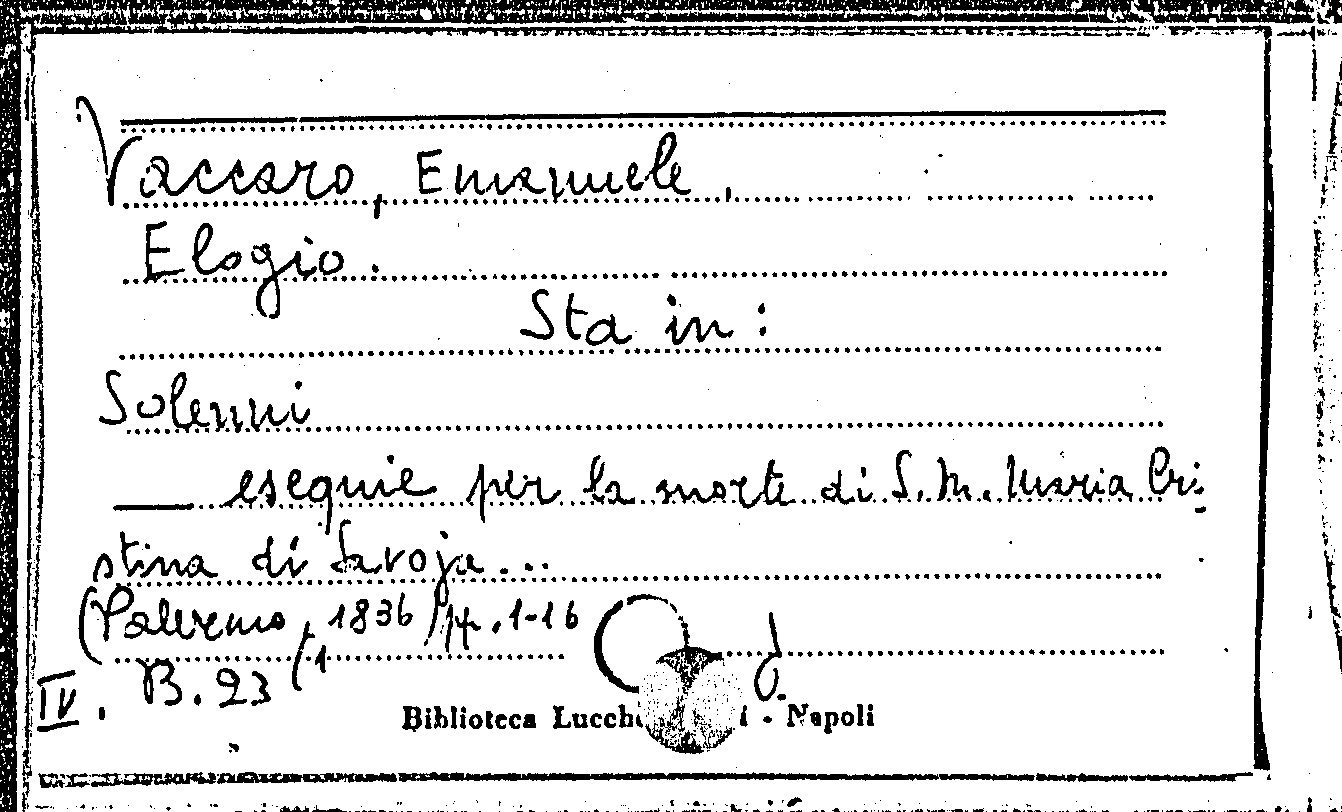 Vaccaro, Emanuele.
Elogio.
Sta in:
Solenni
— esequie per la morte di S. M. Maria Cri-
stina di Savoja...
(Palermo, 1836) pp. 1-16
IV. B. 23 (1 d.
Biblioteca - Napoli